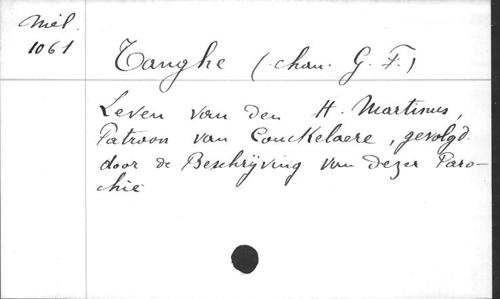 Mél.
1061
Tanghe (chan. G. F.)
Leven van den H. Martinus,
Patroon van Couckelaere, gevolgd
door de Beschrijving van dezer Paro-
chie